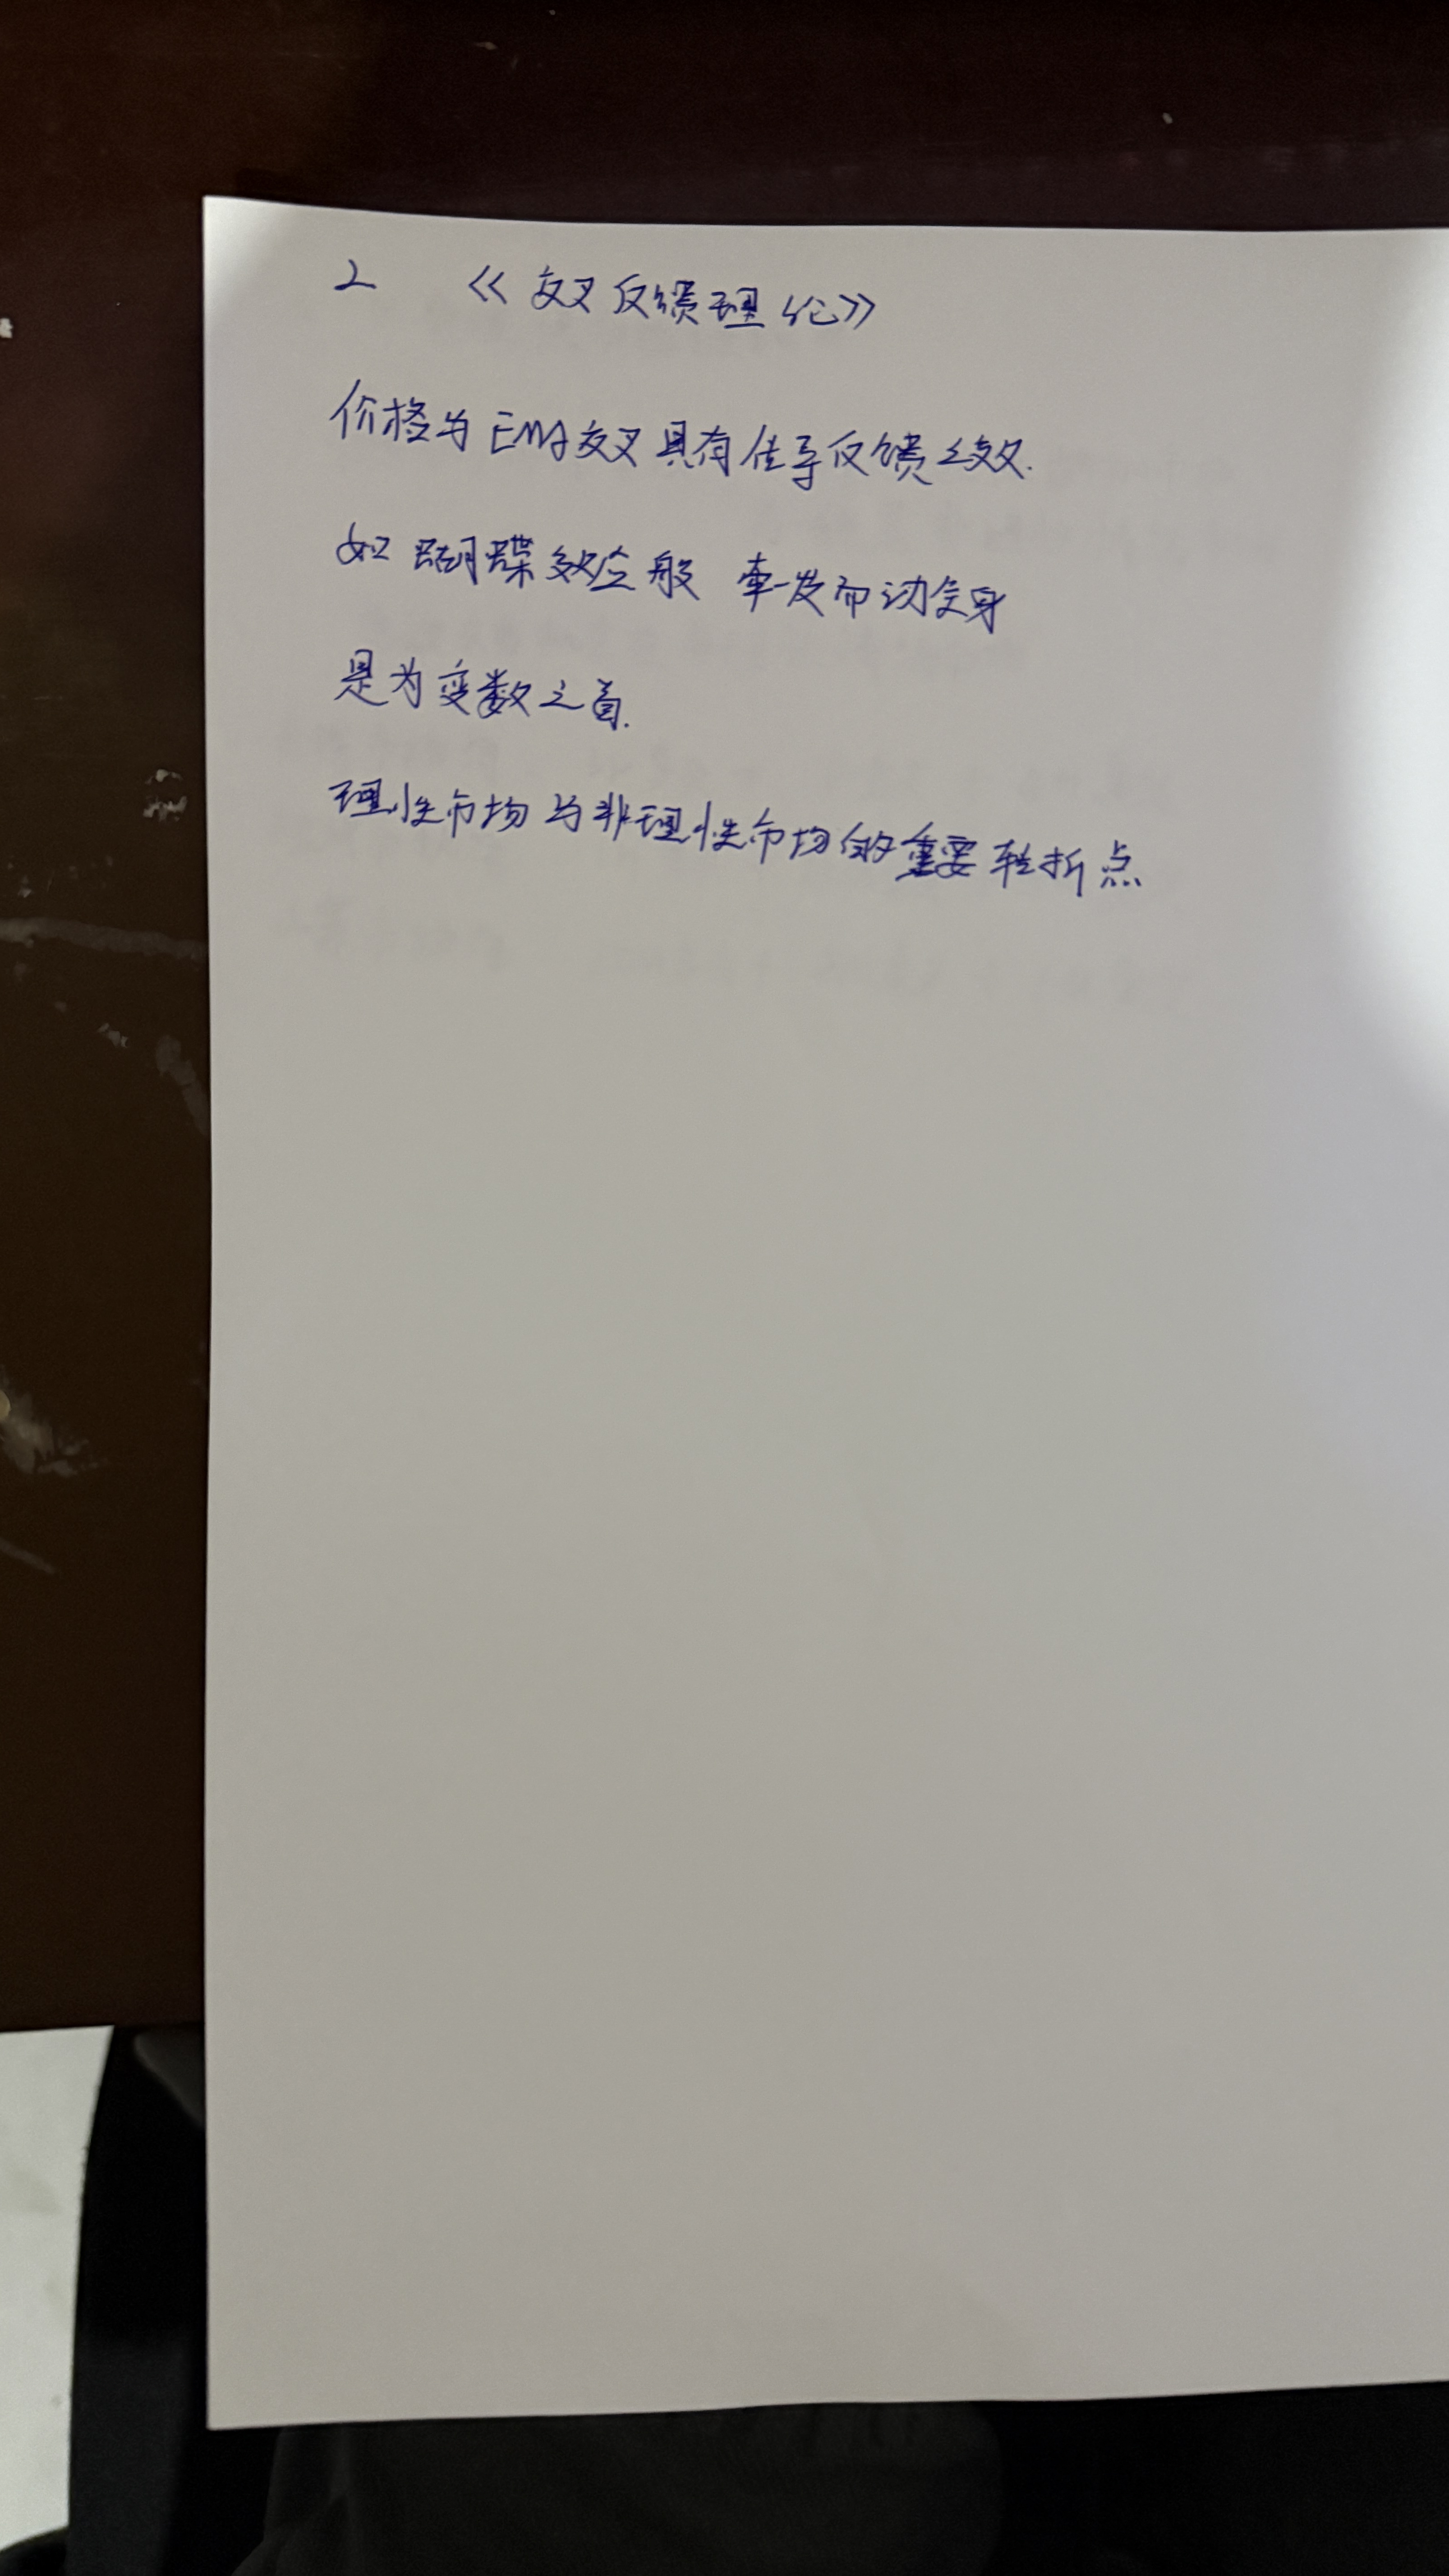 2 《交叉反馈理论》
价格与EMA交叉具有传导反馈之效.
如蝴蝶效应般 牵一发而动全身
是为变数之首.
理性市场与非理性市场的重要转折点